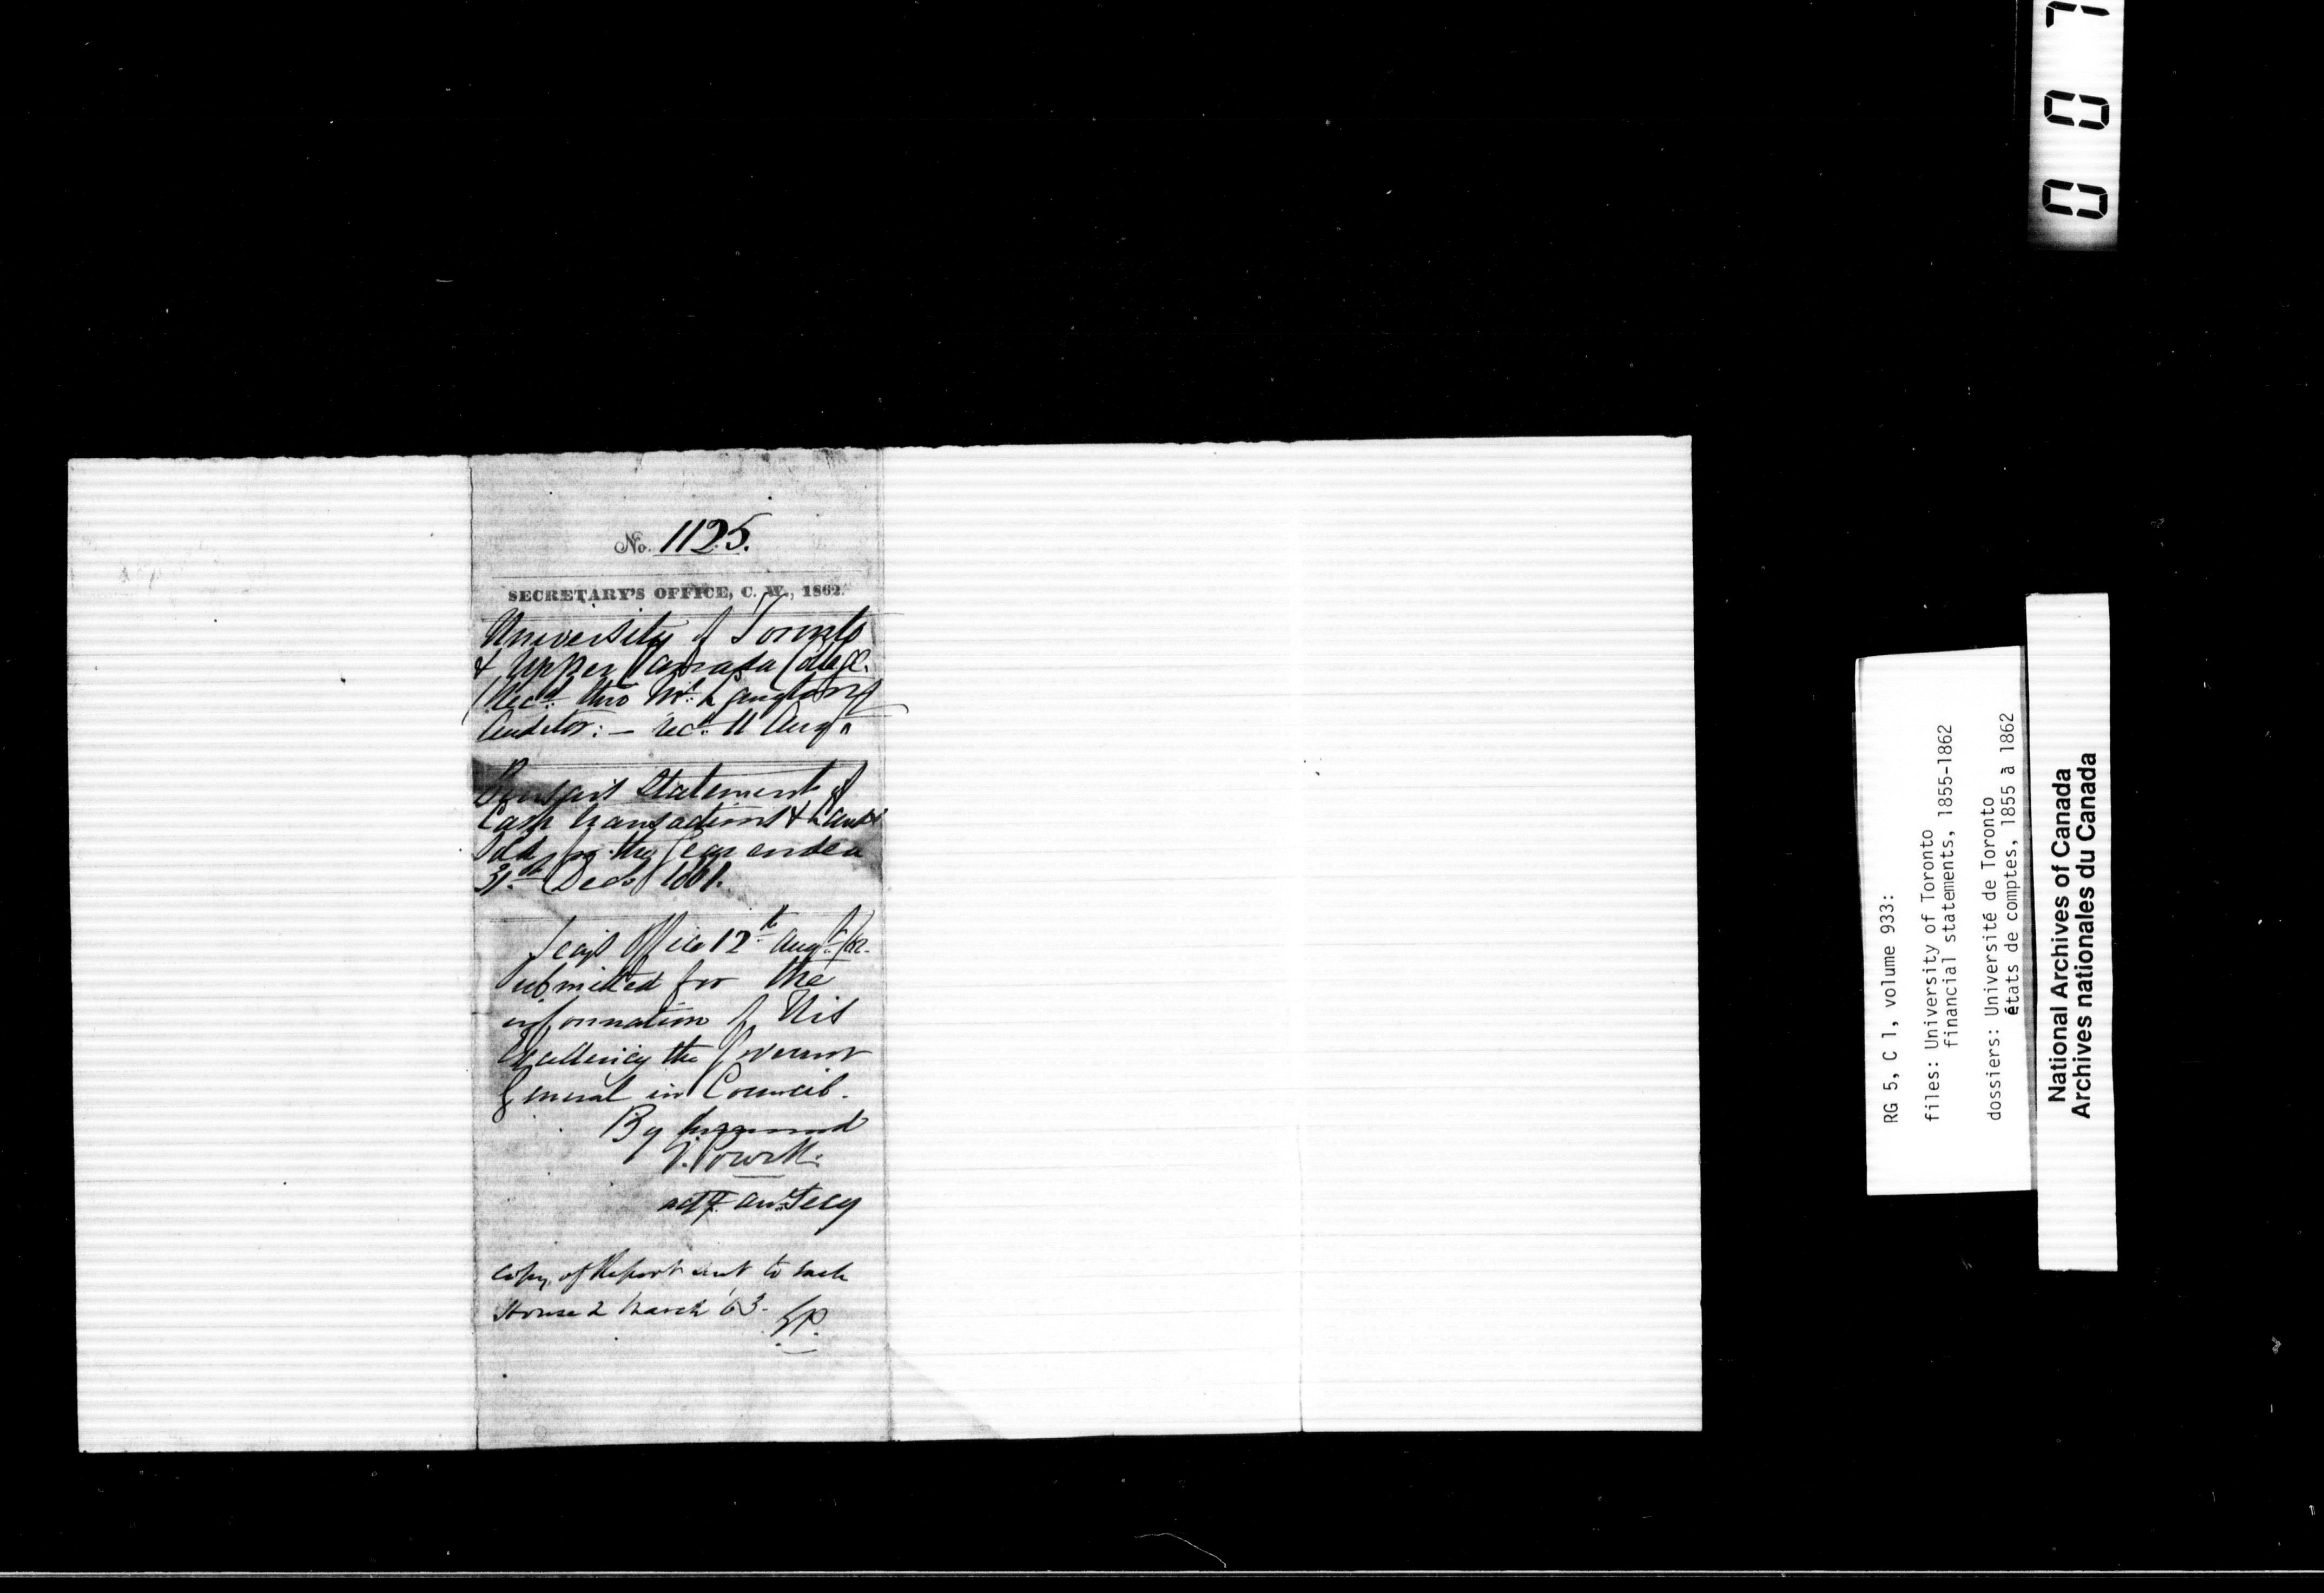 No. 1125.
SECRETARY'S OFFICE, C. W., 1862.
University of Toronto
& Upper Canada College.
(Recd. thro Mr. Langton
Auditor: — recd. 11 Aug.
Bursar's Statement of
Cash transactions & Lands
Sold for the Year ended
31st Decr. 1861.
Secy's Office 12th Augt. /62.
Submitted for the
information of His
Excellency the Governor
General in Council.
By Command
G. Powell.
actg. asst. Secy
Copy of Report sent to each
House 2 March '63.
GP.
0 0 7
RG 5, C 1, volume 933:
files: University of Toronto
financial statements, 1855-1862
dossiers: Université de Toronto
états de comptes, 1855 à 1862
National Archives of Canada
Archives nationales du Canada